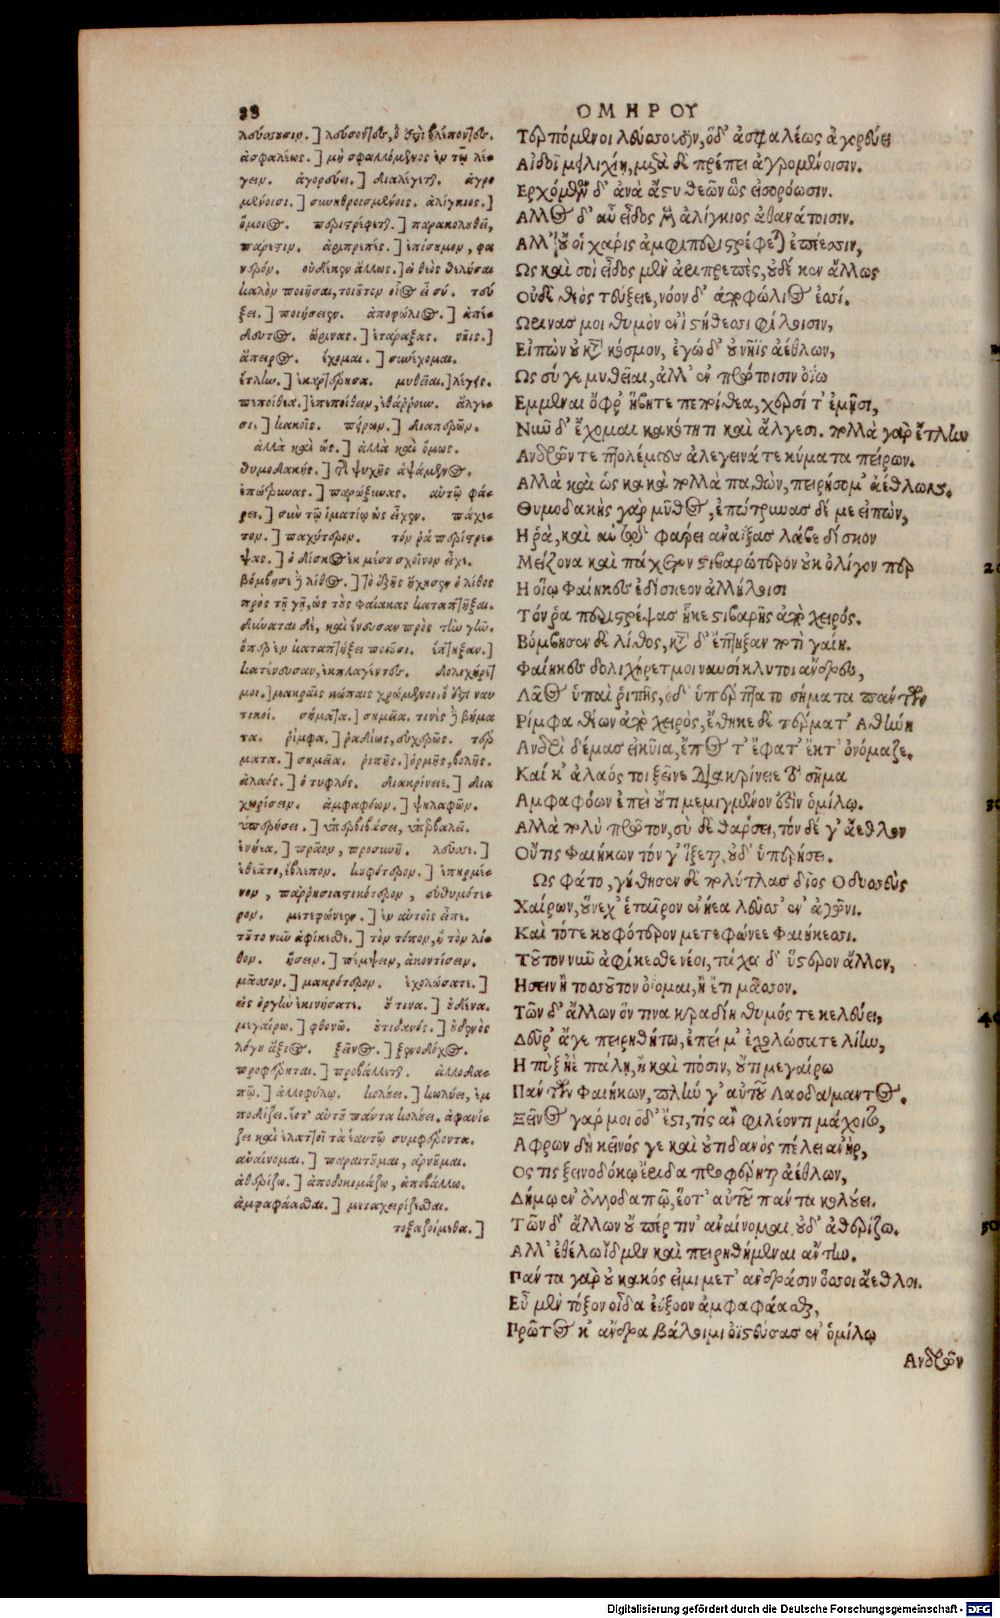 88
ΟΜΗΡΟΥ
λεύσσουσιν.] λεύσσοντες, ὅ ἐστι βλέποντες.
ἀσφαλέως.] μὴ σφαλλόμενος ἐν τῷ λέ-
γειν. ἀγορεύει.] διαλέγεται. ἀγρο
μένοισι.] συνηθροισμένοις. ἀλίγκιος.]
ὅμοιος. περιστρέφεται.] παρακολουθεῖ,
πάρεστιν. ἀριπρεπές.] ἐπίσημον, φα
νερόν. οὐδέ κεν ἄλλως.] ὁ θεὸς θελήσαι
καλὸν ποιῆσαι, τοιοῦτον οἷος εἶ σύ. τεύ
ξει.] ποιήσειεν. ἀποφώλιος.] ἀπαί-
δευτος. ὤρινας.] ἐτάραξας. νῆις.]
ἄπειρος. ἔχομαι.] συνέχομαι.
ἔτλην.] ἐκαρτέρησα. μυθεῖαι.] λέγεις.
πεποίθεα.] ἐπεποίθειν, ἐθάρρουν. ἄλγε-
σι.] κακοῖς. πείρων.] διαπερῶν.
ἀλλὰ καὶ ὧς.] ἀλλὰ καὶ ὅμως.
θυμοδακής.] τῆς ψυχῆς ἁψάμενος.
ἐπώτρυνας.] παρώξυνας. αὐτῷ φά-
ρει.] σὺν τῷ ἱματίῳ ὡς εἶχεν. πάχε-
τον.] παχύτερον. τόν ῥα περιστρέ-
ψας.] ὁ δίσκος ἐκ μέσου σχοῖνον εἶχε.
βόμβησε δὲ λίθος.] ὀξὺ ἤχησεν ὁ λίθος
πρὸς τῇ γῇ, ὡς τοὺς φαίακας καταπτῆξαι.
δύναται δὲ, καὶ ἔνευσαν πρὸς τὴν γῆν.
ὅπερ ἐν καταπτήξει ποιοῦσι. ἔπτηξαν.]
κατένευσαν, ἐκπλαγέντες. δολιχήρετ
μοι.] μακραῖς κώπαις χρώμενοι, ὅ ἐστι ναυ
τικοί. σήματα.] σημεῖα. τινὲς δὲ βήμα
τα. ῥίμφα.] ῥαδίως, εὐχερῶς. τέρ
ματα.] σημεῖα. ῥιπῆς.] ὁρμῆς, βολῆς.
ἀλαός.] ὁ τυφλός. διακρίνειε.] δια
χωρίσειν. ἀμφαφόων.] ψηλαφῶν.
ὑπερήσει.] ὑπερβιβάσει, ὑπερβαλεῖ.
ἐνηέα.] πρᾶον, προσηνῆ. λεῦσσε.]
ἐθεᾶτο, ἔβλεπον. κουφότερον.] ἐπηρμέ-
νον, παρρησιαστικότερον, εὐθυμότε-
ρον. μετεφώνεεν.] ἐν αὐτοῖς εἶπε.
τοῦτο νῦν ἀφίκεσθε.] τὸν τόπον, ἢ τὸν λί-
θον. ἥσειν.] πέμψειν, ἀκοντίσειν.
μᾶσσον.] μακρότερον. ἐχολώσατε.]
εἰς ὀργὴν ἐκινήσατε. οὔτινα.] οὐδένα.
μεγαίρω.] φθονῶ. οὐτιδανός.] οὐδενὸς
λόγου ἄξιος. ξεῖνος.] ξενοδόχος.
προφέρηται.] προβάλληται. ἀλλοδα-
πῷ.] ἀλλοφύλῳ. κολούει.] κωλύει, ἐμ
ποδίζει. ἑοῖ αὐτοῦ πάντα κολούει. ἀφανί-
ζει καὶ ἐλαττοῖ τὰ ἑαυτῷ συμφέροντα.
ἀναίνομαι.] παραιτοῦμαι, ἀρνοῦμαι.
ἀθερίζω.] ἀποδοκιμάζω, ἀποβάλλω.
ἀμφαφάασθαι.] μεταχειρίζεσθαι.
τοξαζοίμεθα.]
Τερπόμενοι λεύσσουσιν, ὅδ' ἀσφαλέως ἀγορεύει
Αἰδοῖ μειλιχίῃ, μετὰ δὲ πρέπει ἀγρομένοισιν.
Ερχόμενον δ' ἀνὰ ἄστυ θεὸν ὣς εἰσορόωσιν.
Αλλος δ' αὖ εἶδος μὲν ἀλίγκιος ἀθανάτοισιν.
Αλλ' οὔ οἱ χάρις ἀμφιπεριστρέφεται ἐπέεσσιν,
Ως καὶ σοὶ εἶδος μὲν ἀριπρεπὲς, οὐδέ κεν ἄλλως
Οὐδὲ θεὸς τεύξειε, νόον δ' ἀποφώλιος ἐσσί.
Ωρινάς μοι θυμὸν ἐνὶ στήθεσσι φίλοισιν,
Εἰπὼν οὐ κατὰ κόσμον, ἐγὼ δ' οὐ νῆϊς ἀέθλων,
Ως σύ γε μυθεῖαι, ἀλλ' ἐν πρώτοισιν ὀΐω
Εμμεναι ὄφρ' ἥβῃ τε πεποίθεα, χερσί τ' ἐμῇσι,
Νῦν δ' ἔχομαι κακότητι καὶ ἄλγεσι. πολλὰ γὰρ ἔτλην
Ανδρῶν τε πτολέμους ἀλεγεινά τε κύματα πείρων.
Αλλὰ καὶ ὣς κακὰ πολλὰ παθὼν, πειρήσομ' ἀέθλων.
Θυμοδακὴς γὰρ μῦθος, ἐπώτρυνας δέ με εἰπὼν,
Η ῥά, καὶ αὐτῷ φάρει ἀναΐξας λάβε δίσκον
Μείζονα καὶ πάχετον στιβαρώτερον οὐκ ὀλίγον περ
Η οἵῳ Φαίηκες ἐδίσκεον ἀλλήλοισι
Τόν ῥα περιστρέψας ἧκε στιβαρῆς ἀπὸ χειρός.
Βόμβησεν δὲ λίθος, κατὰ δ' ἔπτηξαν ποτὶ γαίῃ.
Φαίηκες δολιχήρετμοι ναυσίκλυτοι ἄνδρες,
Λᾶος ὑπαὶ ῥιπῆς, ὁδ' ὑπέρπτατο σήματα πάντων
Ρίμφα θέων ἀπὸ χειρὸς, ἔθηκε δὲ τέρματ' Αθήνη
Ανδρὶ δέμας εἰκυῖα, ἔπος τ' ἔφατ' ἔκ τ' ὀνόμαζε.
Καί κ' ἀλαός τοι ξεῖνε διακρίνειε τὸ σῆμα
Αμφαφόων ἐπεὶ οὔτι μεμιγμένον ἐστὶν ὁμίλῳ.
Αλλὰ πολὺ πρῶτον, σὺ δὲ θάρσει, τόν δέ γ' ἄεθλον
Οὔτις Φαιήκων τόν γ' ἵξεται, οὐδ' ὑπερήσει.
Ως φάτο, γήθησεν δὲ πολύτλας δῖος Οδυσσεὺς
Χαίρων, οὕνεχ' ἑταῖρον ἐνηέα λεῦσσ' ἐν ἀγῶνι.
Καὶ τότε κουφότερον μετεφώνεε Φαιήκεσσι.
Τοῦτον νῦν ἀφίκεσθε νέοι, τάχα δ' ὕστερον ἄλλον,
Ησειν ἢ τοσσοῦτον ὀΐομαι, ἢ ἔτι μᾶσσον.
Τῶν δ' ἄλλων ὅν τινα κραδίη θυμός τε κελεύει,
Δεῦρ' ἄγε πειρηθήτω, ἐπεί μ' ἐχολώσατε λίην,
Η πὺξ ἠὲ πάλῃ, ἢ καὶ ποσὶν, οὔτι μεγαίρω
Πάντων Φαιήκων, πλήν γ' αὐτοῦ Λαοδάμαντος.
Ξεῖνος γάρ μοι ὅδ' ἔστι, τίς ἂν φιλέοντι μάχοιτο,
Αφρων δὴ κεῖνός γε καὶ οὐτιδανὸς πέλει ἀνὴρ,
Ος τις ξεινοδόκῳ ἔριδα προφέρηται ἀέθλων,
Δήμῳ ἐν ἀλλοδαπῷ, ἕο τ' αὐτοῦ πάντα κολούει.
Τῶν δ' ἄλλων οὔ πέρ τιν' ἀναίνομαι οὐδ' ἀθερίζω.
Αλλ' ἐθέλω ἴδμεν καὶ πειρηθήμεναι ἄντην.
Πάντα γὰρ οὐ κακός εἰμι μετ' ἀνδράσιν ὅσσοι ἄεθλοι.
Εὖ μὲν τόξον οἶδα ἐΰξοον ἀμφαφάασθαι,
Πρῶτός κ' ἄνδρα βάλοιμι ὀϊστεύσας ἐν ὁμίλῳ
Ανδρῶν
Digitalisierung gefördert durch die Deutsche Forschungsgemeinschaft - DFG